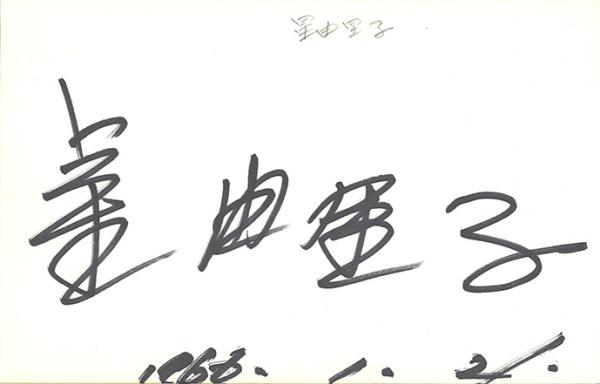 星由里子
星由里子
1966. 1. 21.